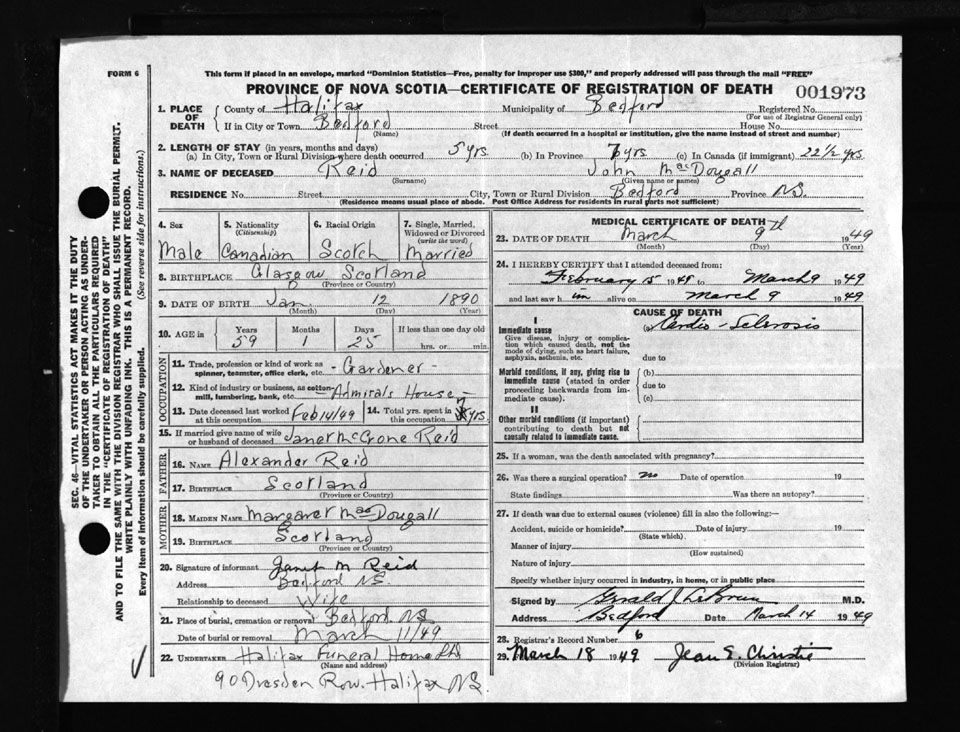 FORM 6
This form if placed in an envelope, marked "Dominion Statistics—Free, penalty for improper use $300," and properly addressed will pass through the mail "FREE"
PROVINCE OF NOVA SCOTIA—CERTIFICATE OF REGISTRATION OF DEATH 001973
1. PLACE OF DEATH
County of Halifax Municipality of Bedford Registered No.
(For use of Registrar General only)
If in City or Town Bedford Street House No.
(Name) (If death occurred in a hospital or institution, give the name instead of street and number)
2. LENGTH OF STAY (in years, months and days)
(a) In City, Town or Rural Division where death occurred 5 yrs (b) In Province yrs (c) In Canada (if immigrant) 22 1/2 yrs
3. NAME OF DECEASED Reid John MacDougall
(Surname) (Given name or names)
RESIDENCE No. Street City, Town or Rural Division Bedford Province N.S.
(Residence means usual place of abode. Post Office Address for residents in rural parts not sufficient)
4. Sex
Male
5. Nationality
(Citizenship)
Canadian
6. Racial Origin
Scotch
7. Single, Married,
Widowed or Divorced
(write the word)
Married
8. BIRTHPLACE Glasgow Scotland
(Province or Country)
9. DATE OF BIRTH Jan. 12 1890
(Month) (Day) (Year)
10. AGE in
Years Months Days If less than one day old
59 1 25 hrs. or min.
OCCUPATION
11. Trade, profession or kind of work as
spinner, teamster, office clerk, etc. - Gardener -
12. Kind of industry or business, as cotton-
mill, lumbering, bank, etc. - Admirals House -
13. Date deceased last worked
at this occupation Feb 14/49
14. Total yrs. spent in
this occupation yrs.
15. If married give name of wife
or husband of deceased Janet McCrone Reid
FATHER
16. NAME Alexander Reid
17. BIRTHPLACE Scotland
(Province or Country)
MOTHER
18. MAIDEN NAME Margaret MacDougall
19. BIRTHPLACE Scotland
(Province or Country)
20. Signature of informant Janet M Reid
Address Bedford NS
Relationship to deceased Wife
21. Place of burial, cremation or removal Bedford. NS
Date of burial or removal March 11/49
22. UNDERTAKER Halifax Funeral Home Ltd
(Name and address)
90 Dresden Row. Halifax NS.
MEDICAL CERTIFICATE OF DEATH
23. DATE OF DEATH March 9th 1949
(Month) (Day)
24. I HEREBY CERTIFY that I attended deceased from:
February 15 1949 to March 9 1949
and last saw h im alive on March 9 1949
CAUSE OF DEATH
I
Immediate cause (a) Cardio-Sclerosis
Give disease, injury or complica-
tion which caused death, not the
mode of dying, such as heart failure,
asphyxia, asthenia, etc. due to
Morbid conditions, if any, giving rise to (b)
immediate cause (stated in order due to
proceeding backwards from im-
mediate cause). (c)
II
Other morbid conditions (if important)
contributing to death but not
causally related to immediate cause.
25. If a woman, was the death associated with pregnancy?
26. Was there a surgical operation? no Date of operation 19
State findings Was there an autopsy?
27. If death was due to external causes (violence) fill in also the following:—
Accident, suicide or homicide? Date of injury 19
(State which).
Manner of injury
(How sustained)
Nature of injury
Specify whether injury occurred in industry, in home, or in public place
Signed by Gerald J LeBrun M.D.
Address Bedford Date March 14 1949
28. Registrar's Record Number 6
29. March 18 1949 Jean E. Christie
(Division Registrar)
SEC. 46—VITAL STATISTICS ACT MAKES IT THE DUTY
OF THE UNDERTAKER OR PERSON ACTING AS UNDER-
TAKER TO OBTAIN ALL THE PARTICULARS REQUIRED
IN THE "CERTIFICATE OF REGISTRATION OF DEATH"
AND TO FILE THE SAME WITH THE DIVISION REGISTRAR WHO SHALL ISSUE THE BURIAL PERMIT.
WRITE PLAINLY WITH UNFADING INK. THIS IS A PERMANENT RECORD.
Every item of information should be carefully supplied. (See reverse side for instructions.)